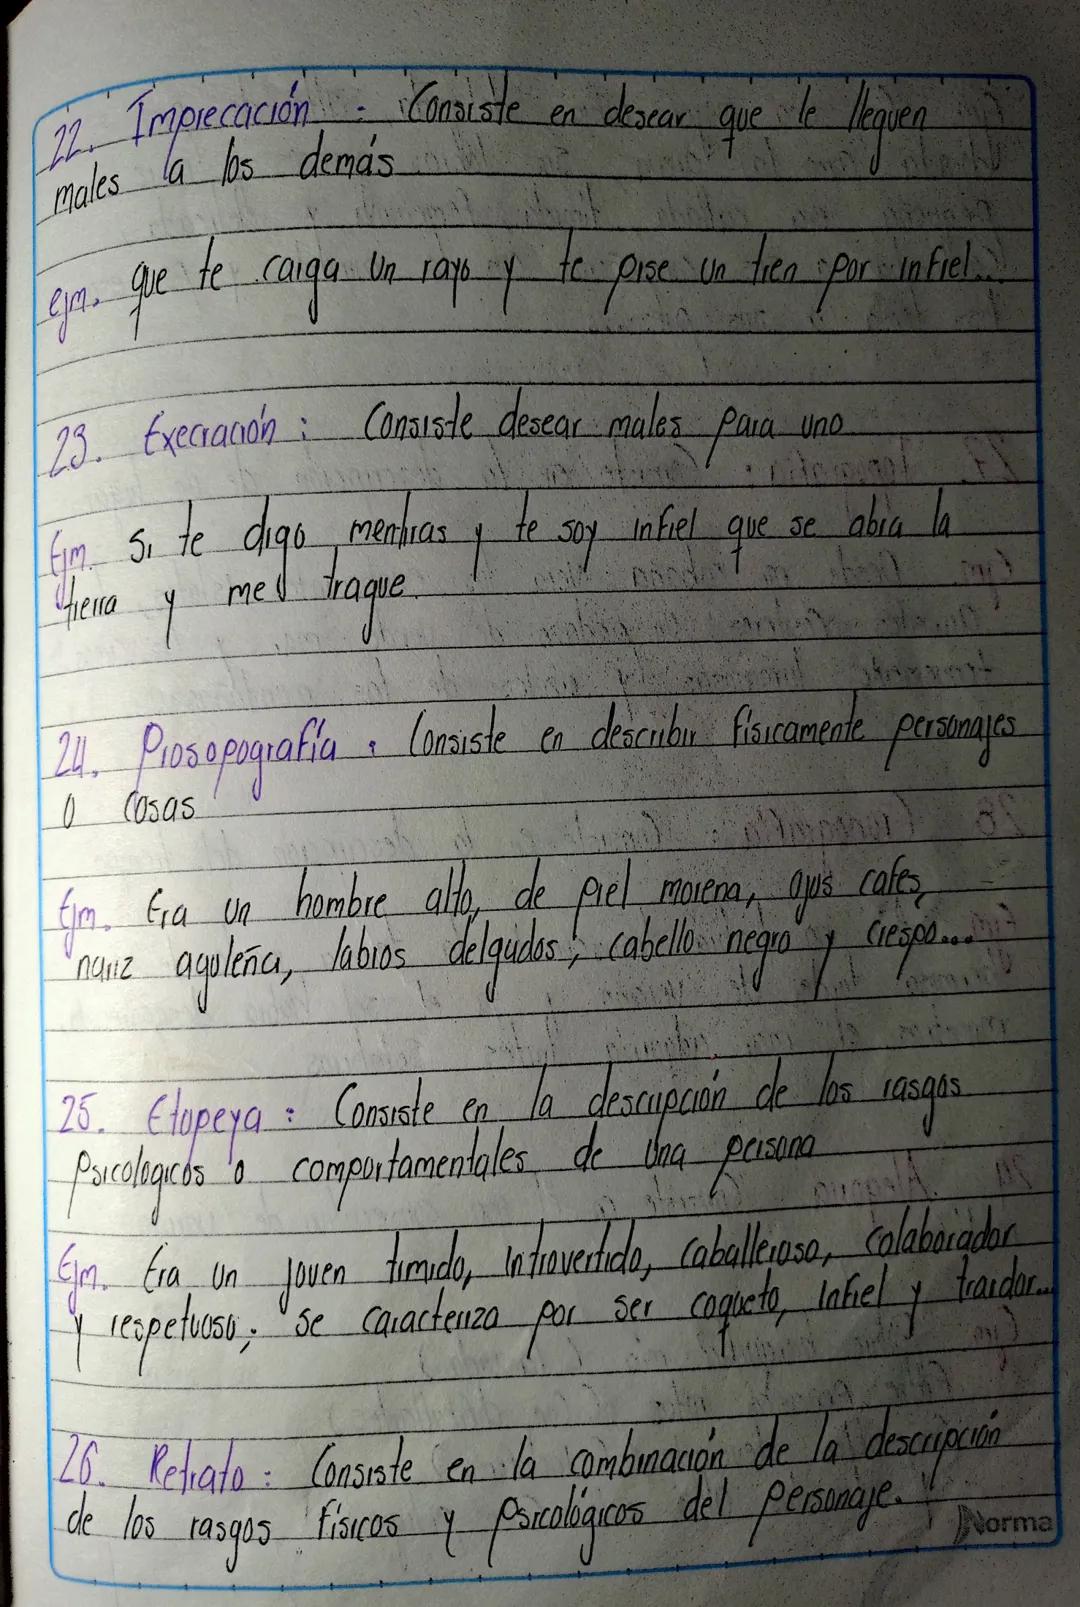 22. Imprecación : Consiste en desear que le lleguen
males a los demás
ejm. que te caiga un rayo y te pise un tren por infiel..
23. Execración : Consiste desear males para uno
Ejm. Si te digo mentiras y te soy infiel que se abra la
tierra y me trague.
24. Prosopografía : Consiste en describir físicamente personajes
o cosas
Ejm. Era un hombre alto, de piel morena, ojos cafes,
nariz aguileña, labios delgados; cabello negro y crespo...
25. Etopeya : Consiste en la descripción de los rasgos
psicologicos o comportamentales de una persona
Ejm. Era un joven timido, introvertido, caballeroso, colaborador
y respetuoso; se caracteriza por ser coqueto, infiel y traidor...
26. Retrato : Consiste en la combinación de la descripción
de los rasgos físicos y psicológicos del personaje.
Norma